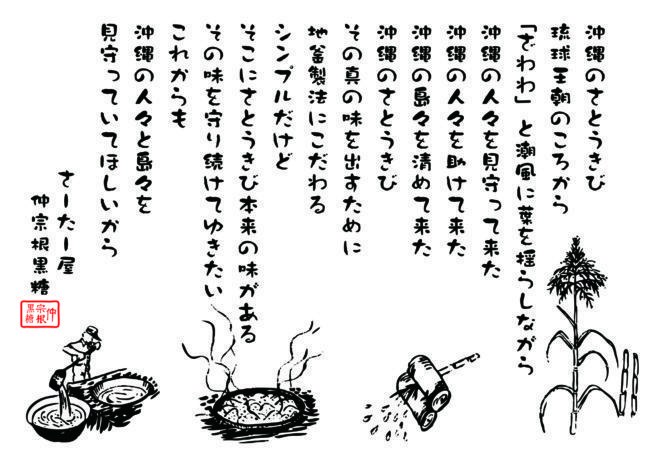 沖縄のさとうきび
琉球王朝のころから
「ざわわ」と潮風に葉を揺らしながら
沖縄の人々を見守って来た
沖縄の人々を助けて来た
沖縄の島々を清めて来た
沖縄のさとうきび
その真の味を出すために
地釜製法にこだわる
シンプルだけど
そこにさとうきび本来の味がある
その味を守り続けてゆきたい
これからも
沖縄の人々と島々を
見守っていてほしいから
さーたー屋
仲宗根黒糖
仲宗根黒糖